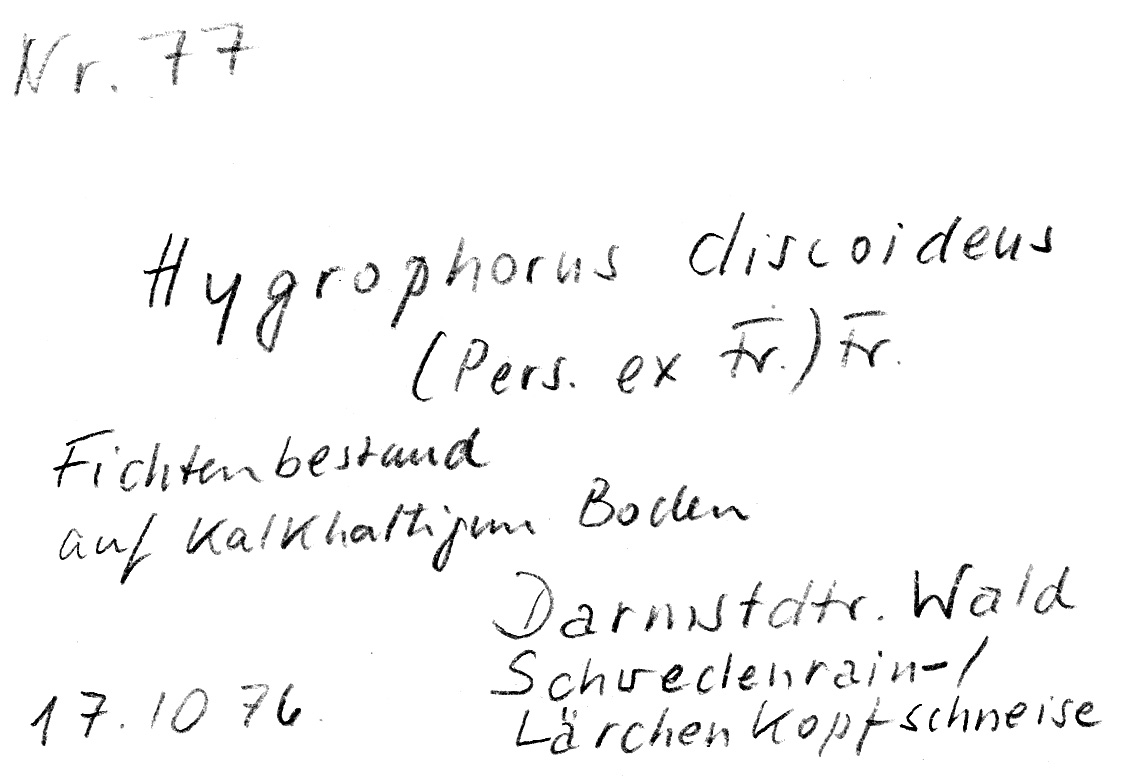 Nr. 77
Hygrophorus discoideus
(Pers. ex Fr.) Fr.
Fichtenbestand
auf kalkhaltigem Boden
Darmstdtr. Wald
Schwedenrain-/
17.10 76 Lärchenkopfschneise